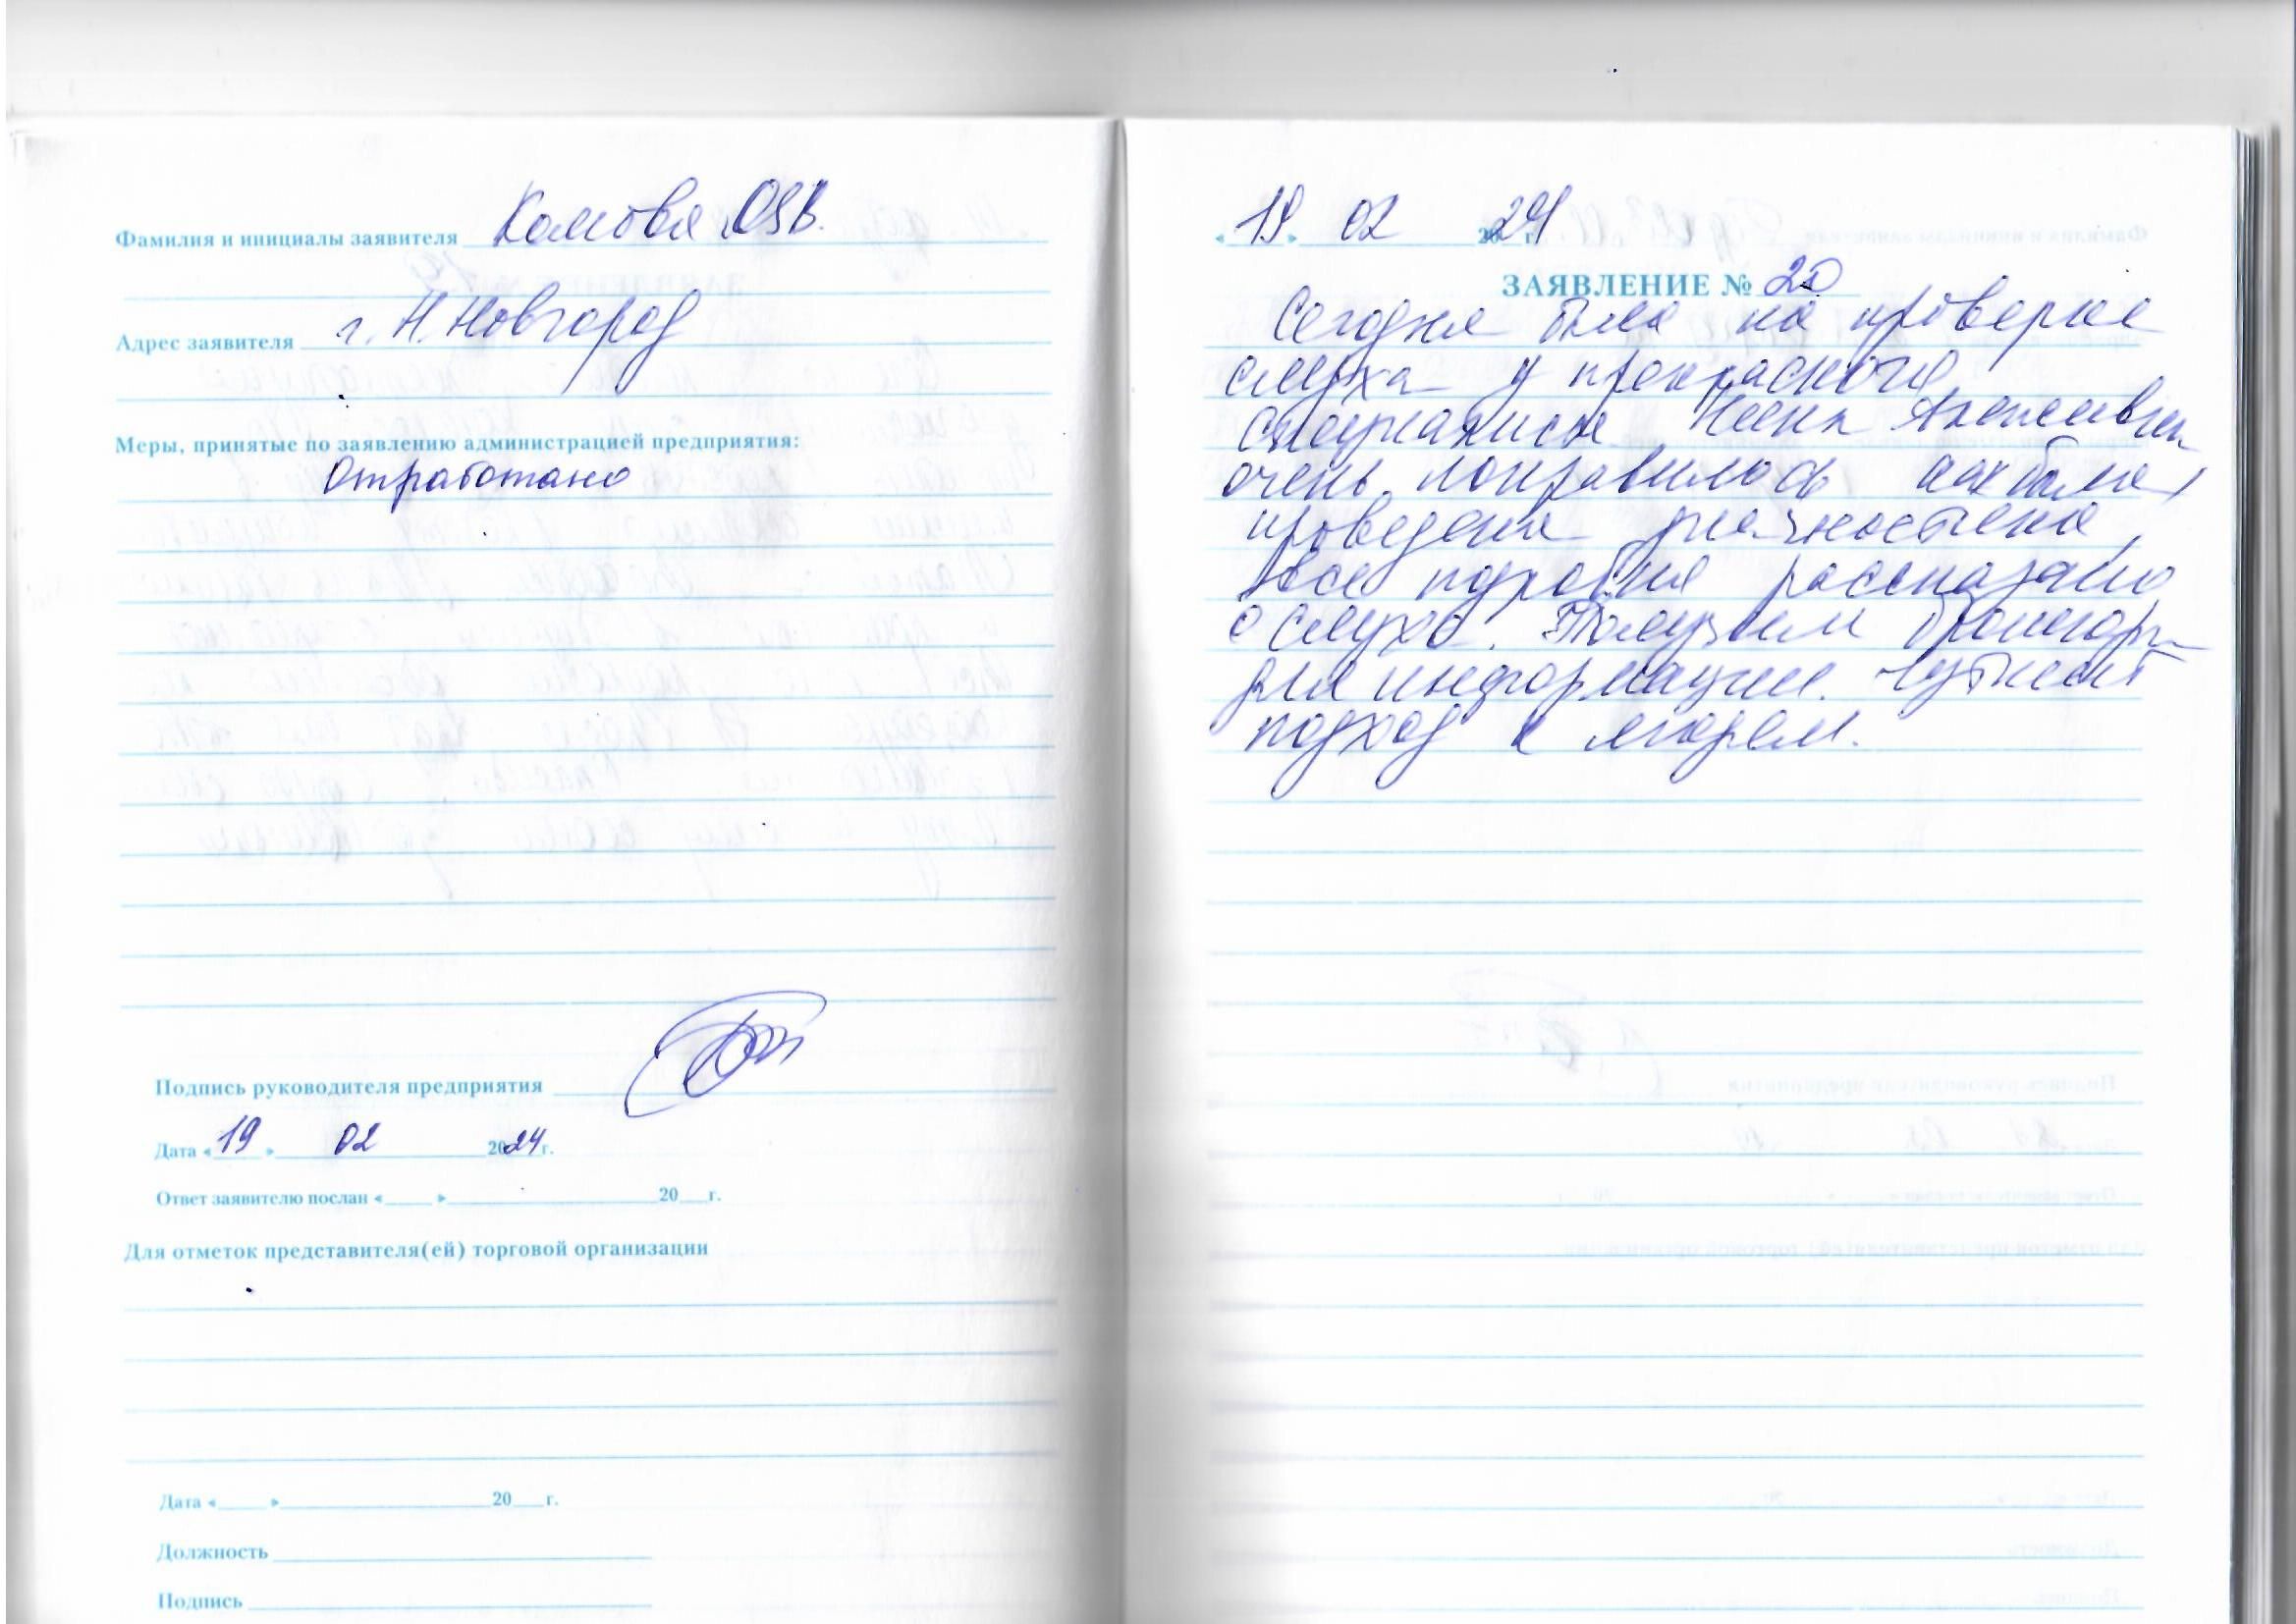 Фамилия и инициалы заявителя Комова О.В.
Адрес заявителя г. Н.Новгород
Меры, принятые по заявлению администрацией предприятия:
Отработано
Подпись руководителя предприятия
Дата «19» 02 2024 г.
Ответ заявителю послан «____» 20__г.
Для отметок представителя(ей) торговой организации
Дата «____» 20__г.
Должность
Подпись
«19» 02 2024 г.
ЗАЯВЛЕНИЕ № 20
Сегодня была на проверке
слуха у прекрасного
специалиста
очень понравилось как была
проведена диагностика,
все подробно рассказано
о слухе. Получили
для информации. Чуткий
подход к людям.